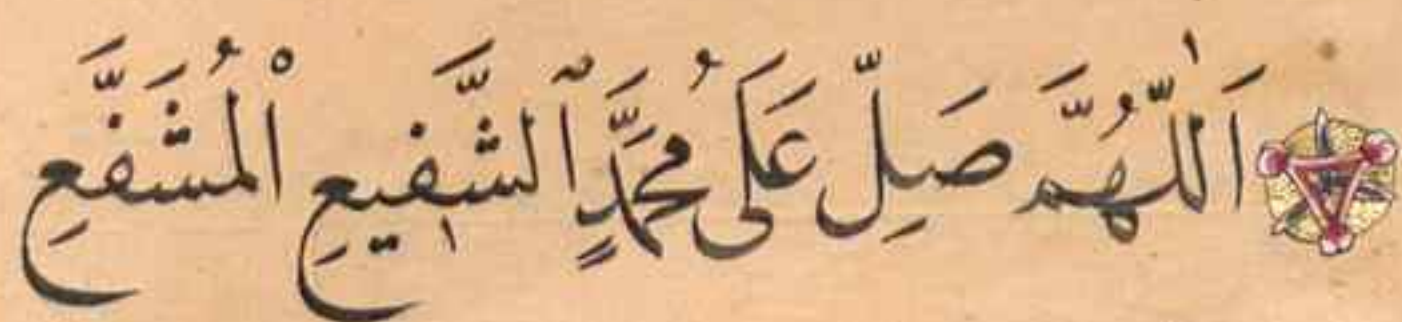 اَللّٰهُمَّ صَلِّ عَلَى مُحَمَّدٍ ٱلشَّفِيعِ الْمُشَفَّعِ